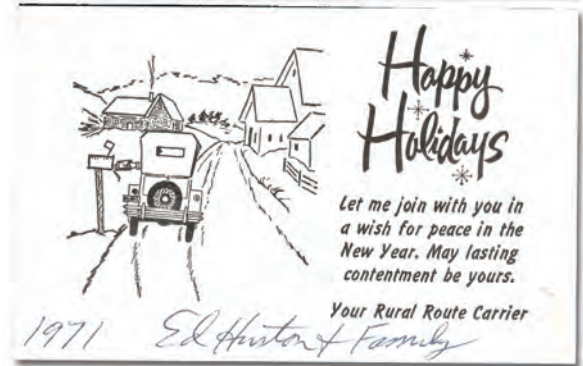 Happy
Holidays
Let me join with you in
a wish for peace in the
New Year. May lasting
contentment be yours.
Your Rural Route Carrier
1971 Ed Huston & Family